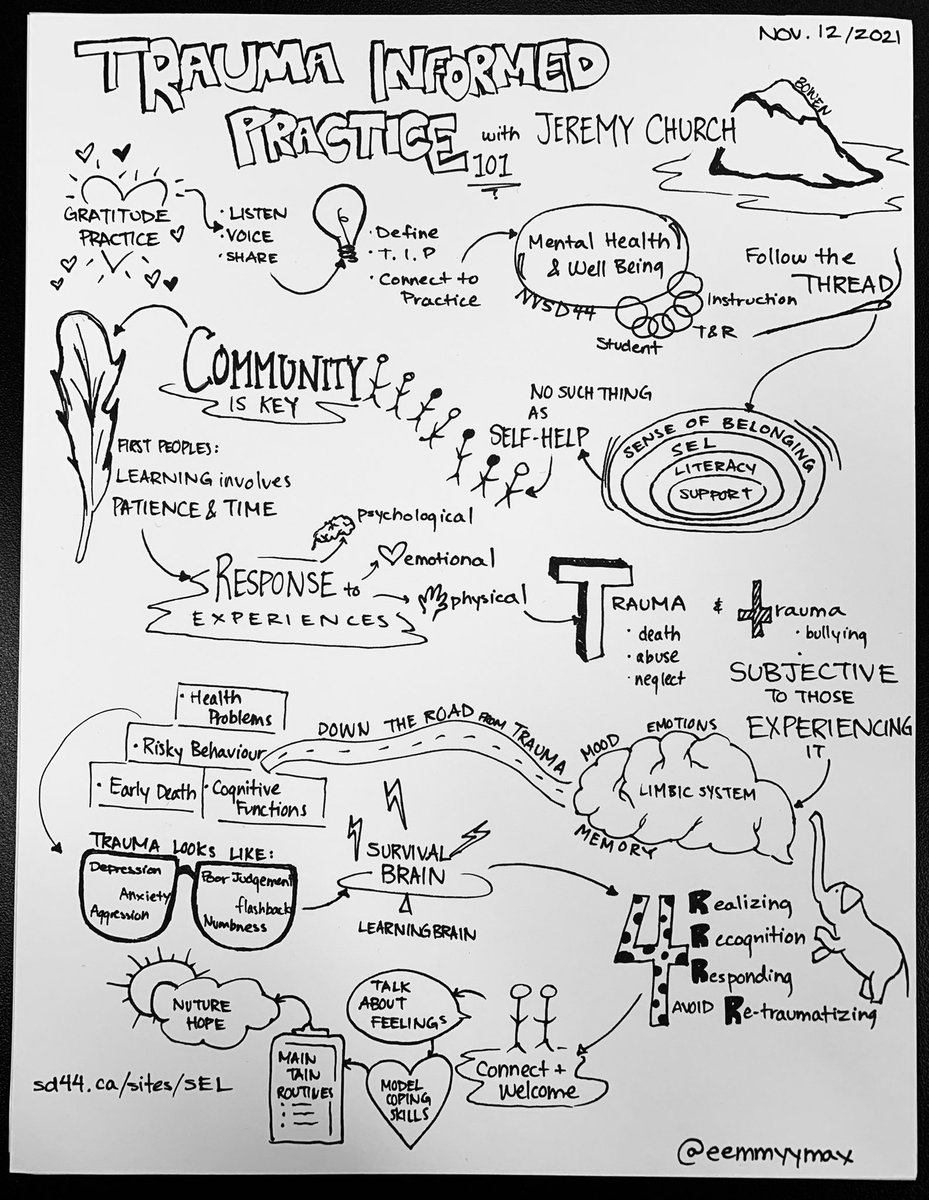 NOV. 12/2021
TRAUMA INFORMED
PRACTICE with JEREMY CHURCH
101
BOWEN
GRATITUDE
PRACTICE
• LISTEN
• VOICE
• SHARE
• Define
• T. I. P
• Connect to
Practice
Mental Health
& Well Being
NVSD44
Student
T&R
Instruction
Follow the
THREAD
COMMUNITY
IS KEY
FIRST PEOPLES:
LEARNING involves
PATIENCE & TIME
NO SUCH THING
AS
SELF-HELP
SENSE OF BELONGING
SEL
LITERACY
SUPPORT
RESPONSE to
EXPERIENCES
psychological
emotional
physical
TRAUMA
• death
• abuse
• neglect
&
trauma
• bullying
SUBJECTIVE
TO THOSE
EXPERIENCING
IT
• Health
Problems
• Risky Behaviour
• Early Death
• Cognitive
Functions
DOWN THE ROAD FROM TRAUMA
MOOD
EMOTIONS
LIMBIC SYSTEM
MEMORY
TRAUMA LOOKS LIKE:
Depression
Anxiety
Aggression
Poor Judgement
flashback
Numbness
SURVIVAL
BRAIN
LEARNING BRAIN
4
Realizing
Recognition
Responding
AVOID Re-traumatizing
Connect +
Welcome
TALK
ABOUT
FEELINGS
MODEL
COPING
SKILLS
MAIN
TAIN
ROUTINES
NUTURE
HOPE
sd44.ca/sites/SEL
@eemmyymax